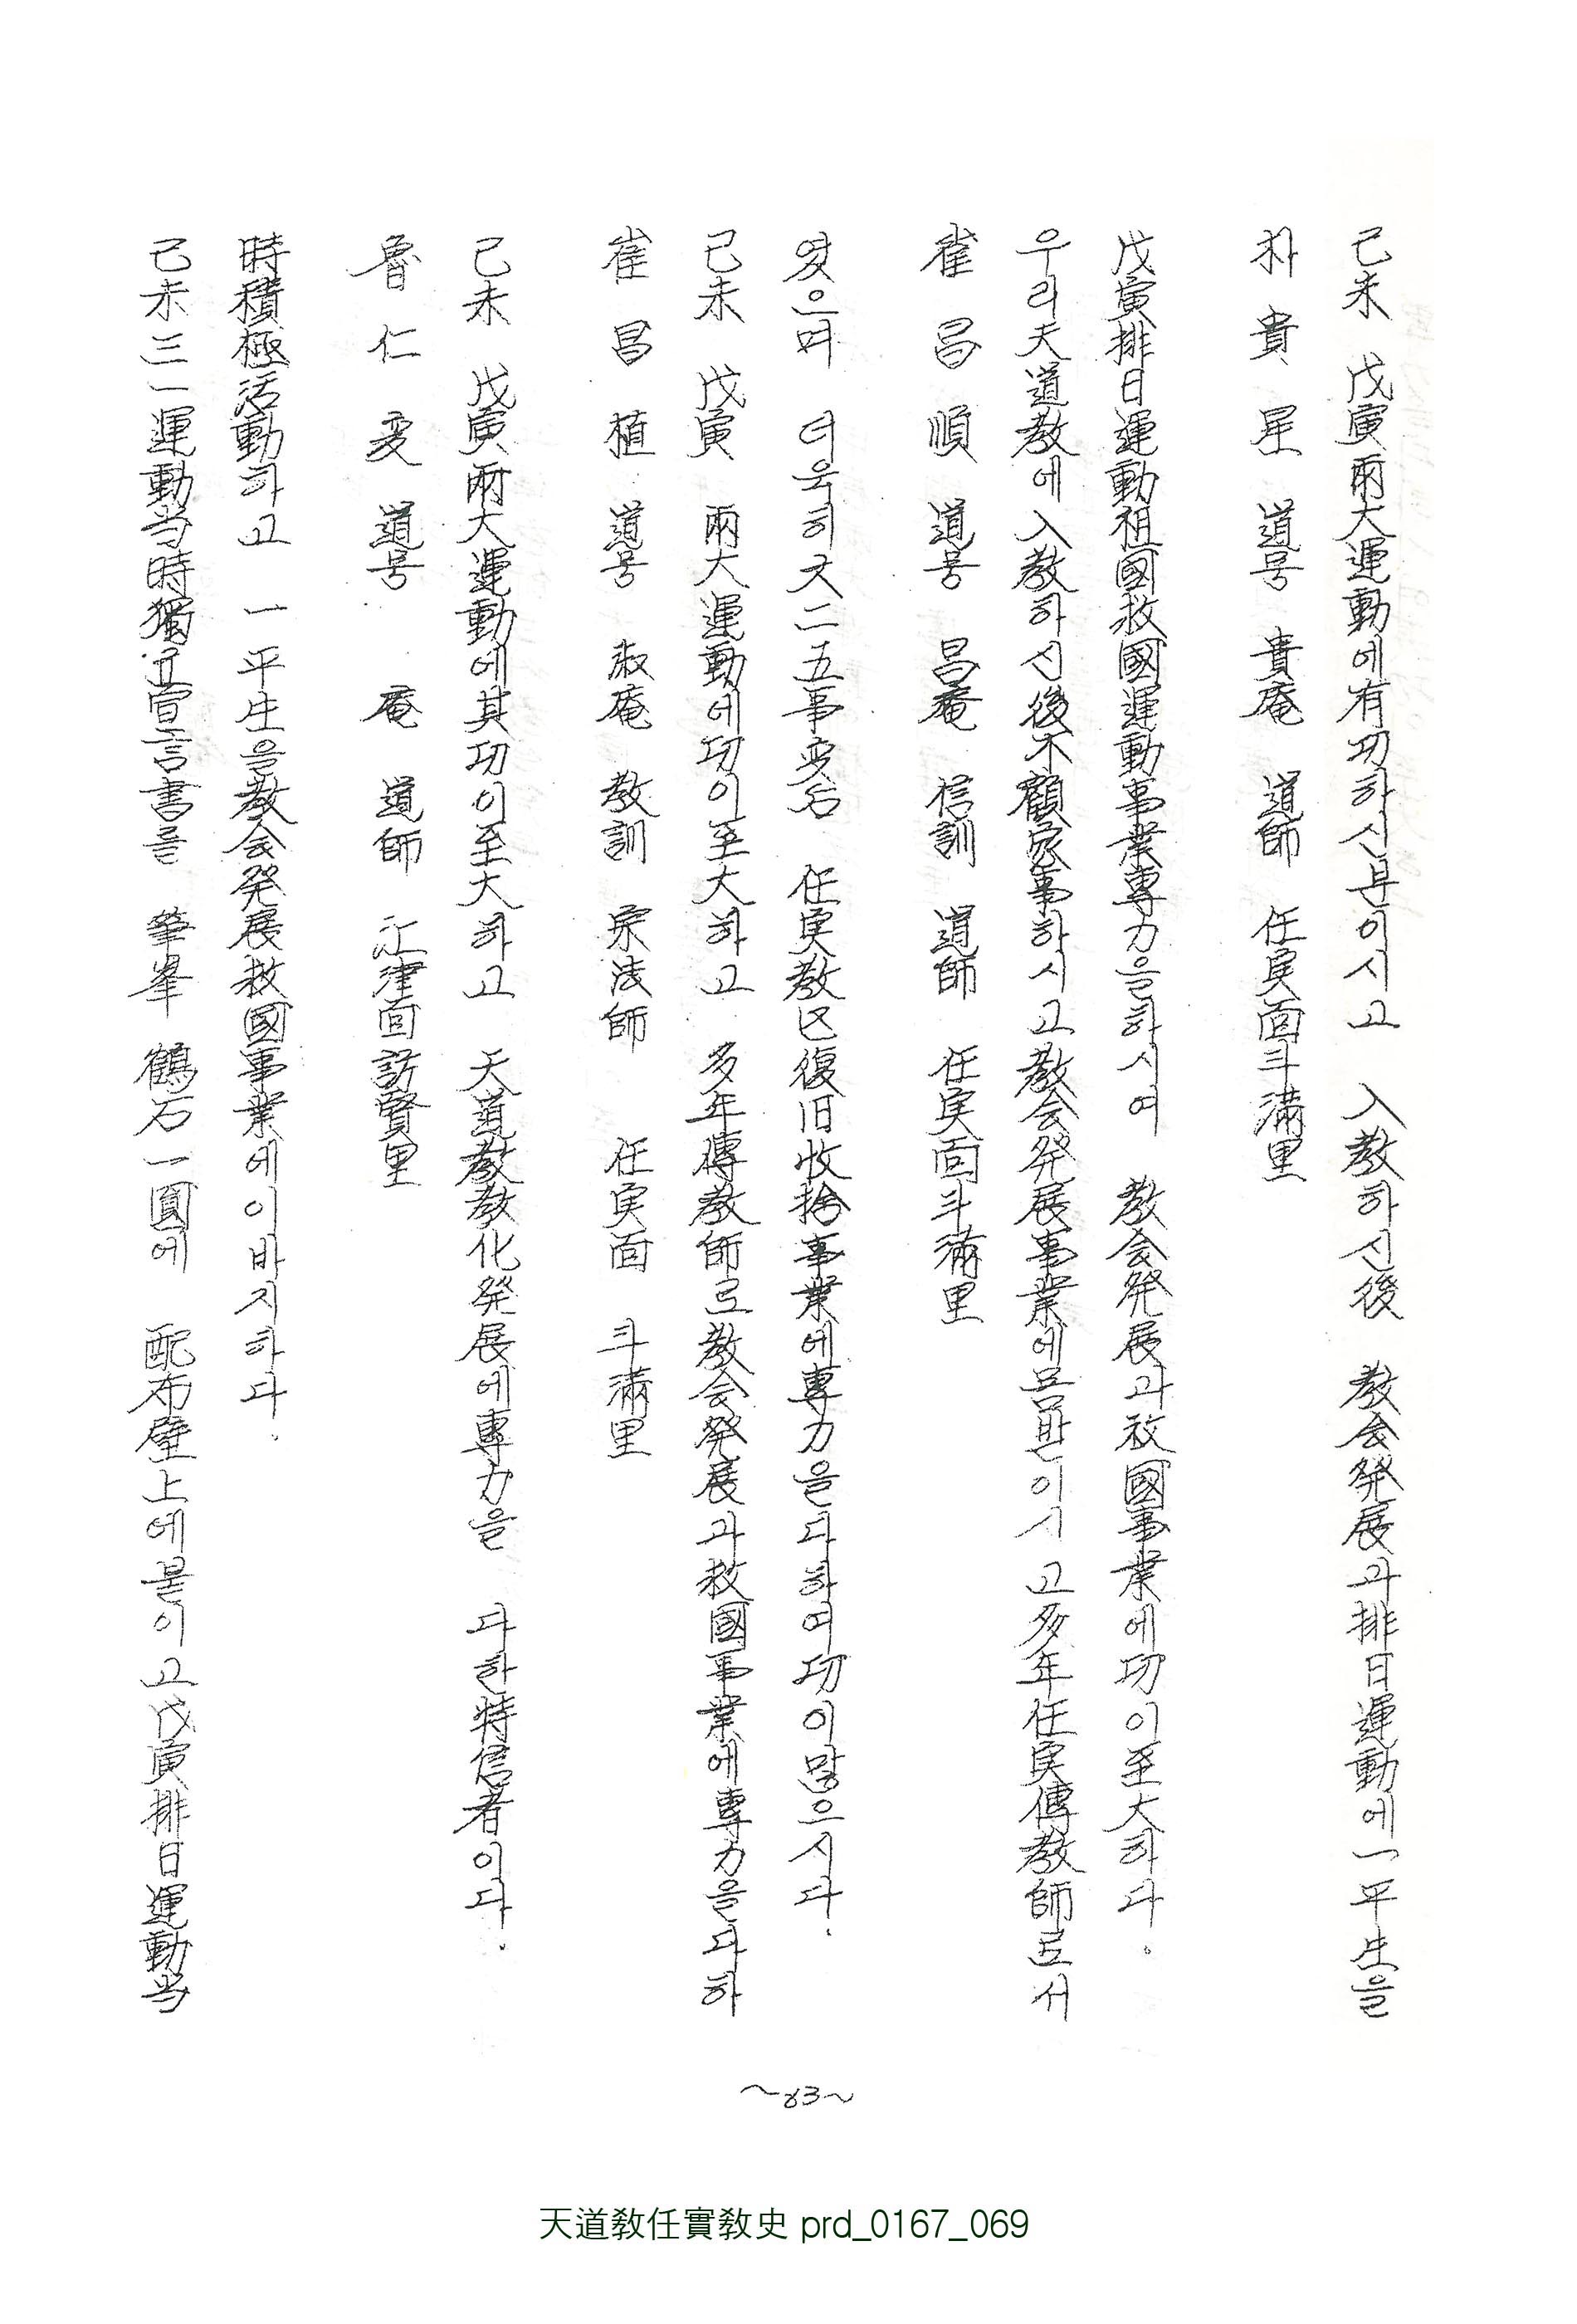 己未三一運動当時獨立宣言書를 華峯 鶴石一圓에 配布壁上에붙이고戊寅排日運動当
時積極活動하고 一平生을教会発展救國事業에이바지하다.
魯仁変 道号 庵 道師 江津面訪賢里
己未 戊寅兩大運動에其功이至大하고 天道教教化発展에專力을 다한特信者이다.
崔昌植 道号 淑庵 教訓 宗法師 任実面 斗滿里
己未 戊寅 兩大運動에功이至大하고 多年傳教師로教会発展과救國事業에專力을다하
였으며 더욱히六二五事変后 任実教区復旧收拾事業에專力을다하여功이많으시다.
崔昌順 道号 昌庵 信訓 道師 任実面斗滿里
우리天道教에入教하신後不顧家事하시고教会発展事業에몸반이시고多年任実傳教師로서
戊寅排日運動祖國救國運動事業專力을하시여 教会発展과救國事業에功이至大하다.
朴貴星 道号 貴庵 道師 任実面斗滿里
己未 戊寅兩大運動에有功하신분이시고 入教하신後 教会発展과排日運動에一平生을
~63~
天道敎任實敎史 prd_0167_069